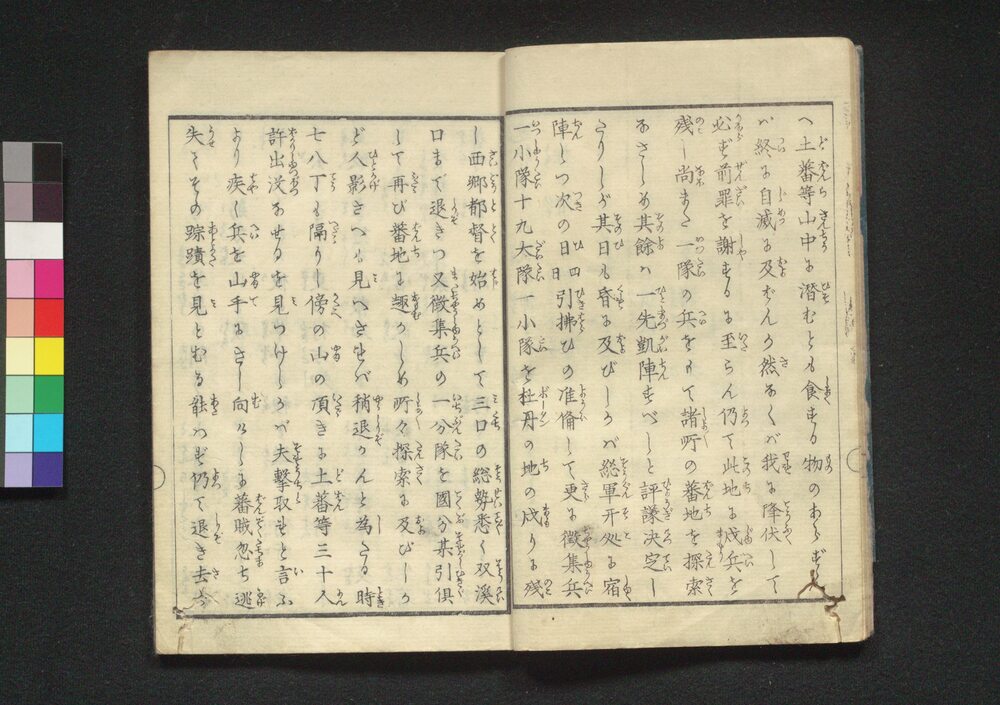 へ土番等山中に潜むとも食する物のあらざれ
バ終に自滅に及ばんか然なくバ我に降伏して
必ず前罪を謝するに至らん仍て此地に戍兵を
残し尚また一隊の兵をして諸所の番地を探索
なさしめ其餘ハ一先凱陣すべしと評議決定し
たりしが其日も昏に及びしかバ総軍开処に宿
陣しつ次の日四日引拂ひの准備して更に徴集兵
一小隊十九大隊一小隊を牡丹の地の戍りに残
し西郷都督を始めとして三口の総勢悉く双溪
口まで退きつ又徴集兵の一分隊を國分某引倶
して再び番地に趣かしめ所々探索に及びしか
ど人影さへも見へざれバ稍退かんと為たる時
七八丁も隔りし傍の山の頂きに土番等三十人
許出没なせるを見つけしかバ夫撃取れと言ふ
より疾く兵を山手にさし向けしに番賊忽ち逃
失てその踪蹟を見とむる能ハず仍て退き去る